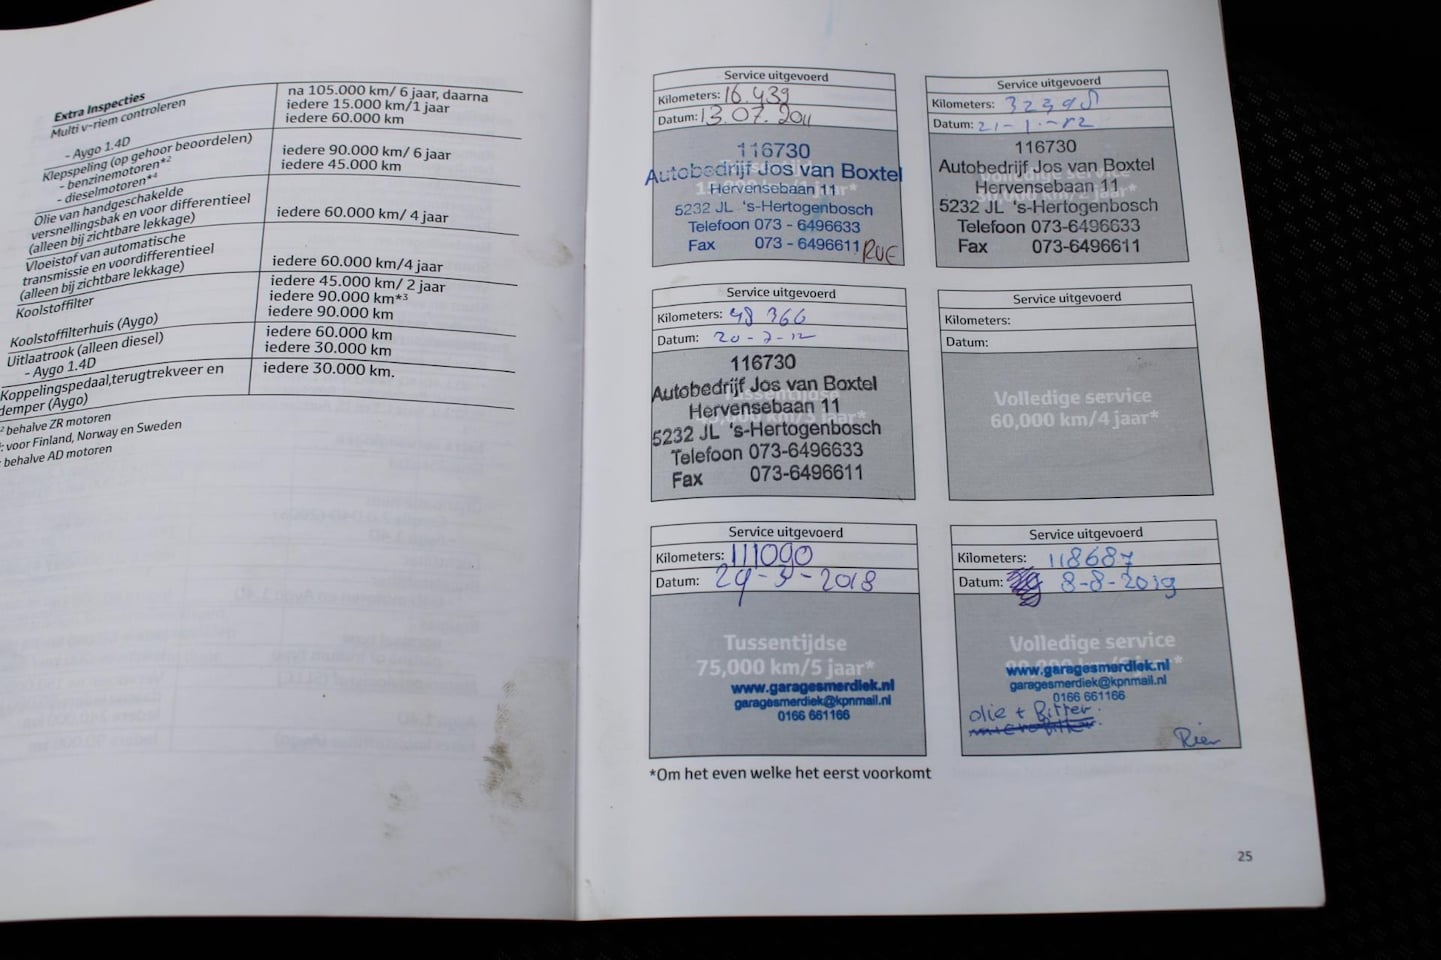 Extra Inspecties
Multi v-riem controleren
na 105.000 km/ 6 jaar, daarna
iedere 15.000 km/1 jaar
- Aygo 1.4D
iedere 60.000 km
Klepspeling (op gehoor beoordelen)
- benzinemotoren*2
iedere 90.000 km/ 6 jaar
- dieselmotoren*4
iedere 45.000 km
Olie van handgeschakelde
versnellingsbak en voor differentieel
(alleen bij zichtbare lekkage)
iedere 60.000 km/ 4 jaar
Vloeistof van automatische
transmissie en voordifferentieel
(alleen bij zichtbare lekkage)
iedere 60.000 km/4 jaar
Koolstoffilter
iedere 45.000 km/ 2 jaar
iedere 90.000 km*3
Koolstoffilterhuis (Aygo)
iedere 90.000 km
Uitlaatrook (alleen diesel)
iedere 60.000 km
- Aygo 1.4D
iedere 30.000 km
Koppelingspedaal,terugtrekveer en
demper (Aygo)
iedere 30.000 km.
*2 behalve ZR motoren
: voor Finland, Norway en Sweden
: behalve AD motoren
Service uitgevoerd
Kilometers: 16.439
Datum: 13.07.2011
116730
Autobedrijf Jos van Boxtel
Hervensebaan 11
5232 JL 's-Hertogenbosch
Telefoon 073 - 6496633
Fax 073 - 6496611
Service uitgevoerd
Kilometers:
Datum:
116730
Autobedrijf Jos van Boxtel
Hervensebaan 11
5232 JL 's-Hertogenbosch
Telefoon 073-6496633
Fax 073-6496611
Service uitgevoerd
Kilometers: 48 366
Datum: 20-7-12
116730
Autobedrijf Jos van Boxtel
Hervensebaan 11
5232 JL 's-Hertogenbosch
Telefoon 073-6496633
Fax 073-6496611
Service uitgevoerd
Kilometers:
Datum:
Volledige service
60,000 km/4 jaar*
Service uitgevoerd
Kilometers: 111090
Datum: 29-3-2018
Tussentijdse
75,000 km/5 jaar*
www.garagesmerdiek.nl
garagesmerdiek@kpnmail.nl
0166 661166
Service uitgevoerd
Kilometers: 118687
Datum: 8-8-2019
Volledige service
www.garagesmerdiek.nl
garagesmerdiek@kpnmail.nl
0166 661166
olie + filter.
*Om het even welke het eerst voorkomt
25